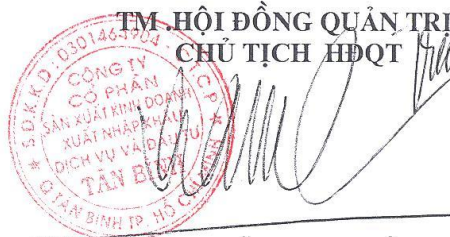 TM .HỘI ĐỒNG QUẢN TRỊ
CHỦ TỊCH HĐQT
CÔNG TY
CỔ PHẦN
SẢN XUẤT KINH DOANH
XUẤT NHẬP KHẨU
DỊCH VỤ VÀ ĐẦU TƯ
TÂN BÌNH
Q.TÂN BÌNH TP. HỒ CHÍ MINH